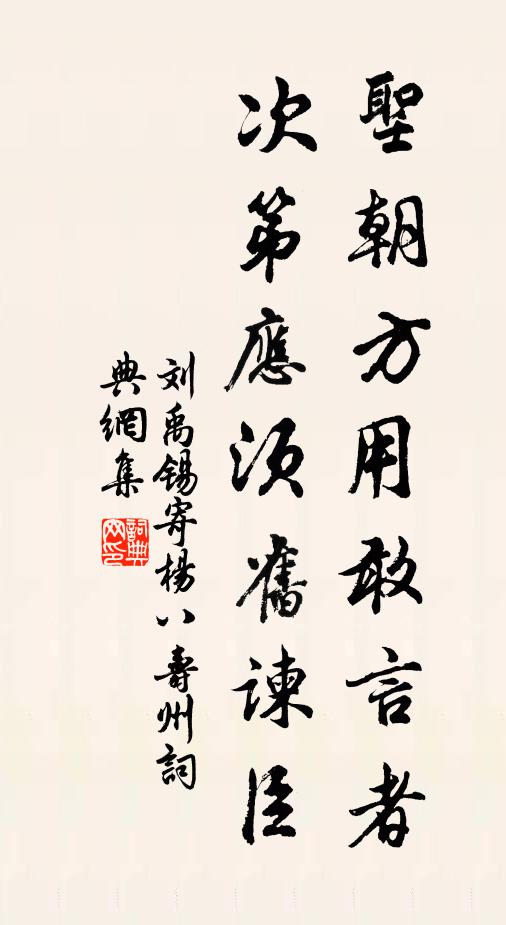 聖朝方用敢言者
次第應須舊諫臣
刘禹锡寄楊八壽州詞
典網集
詞典
网印